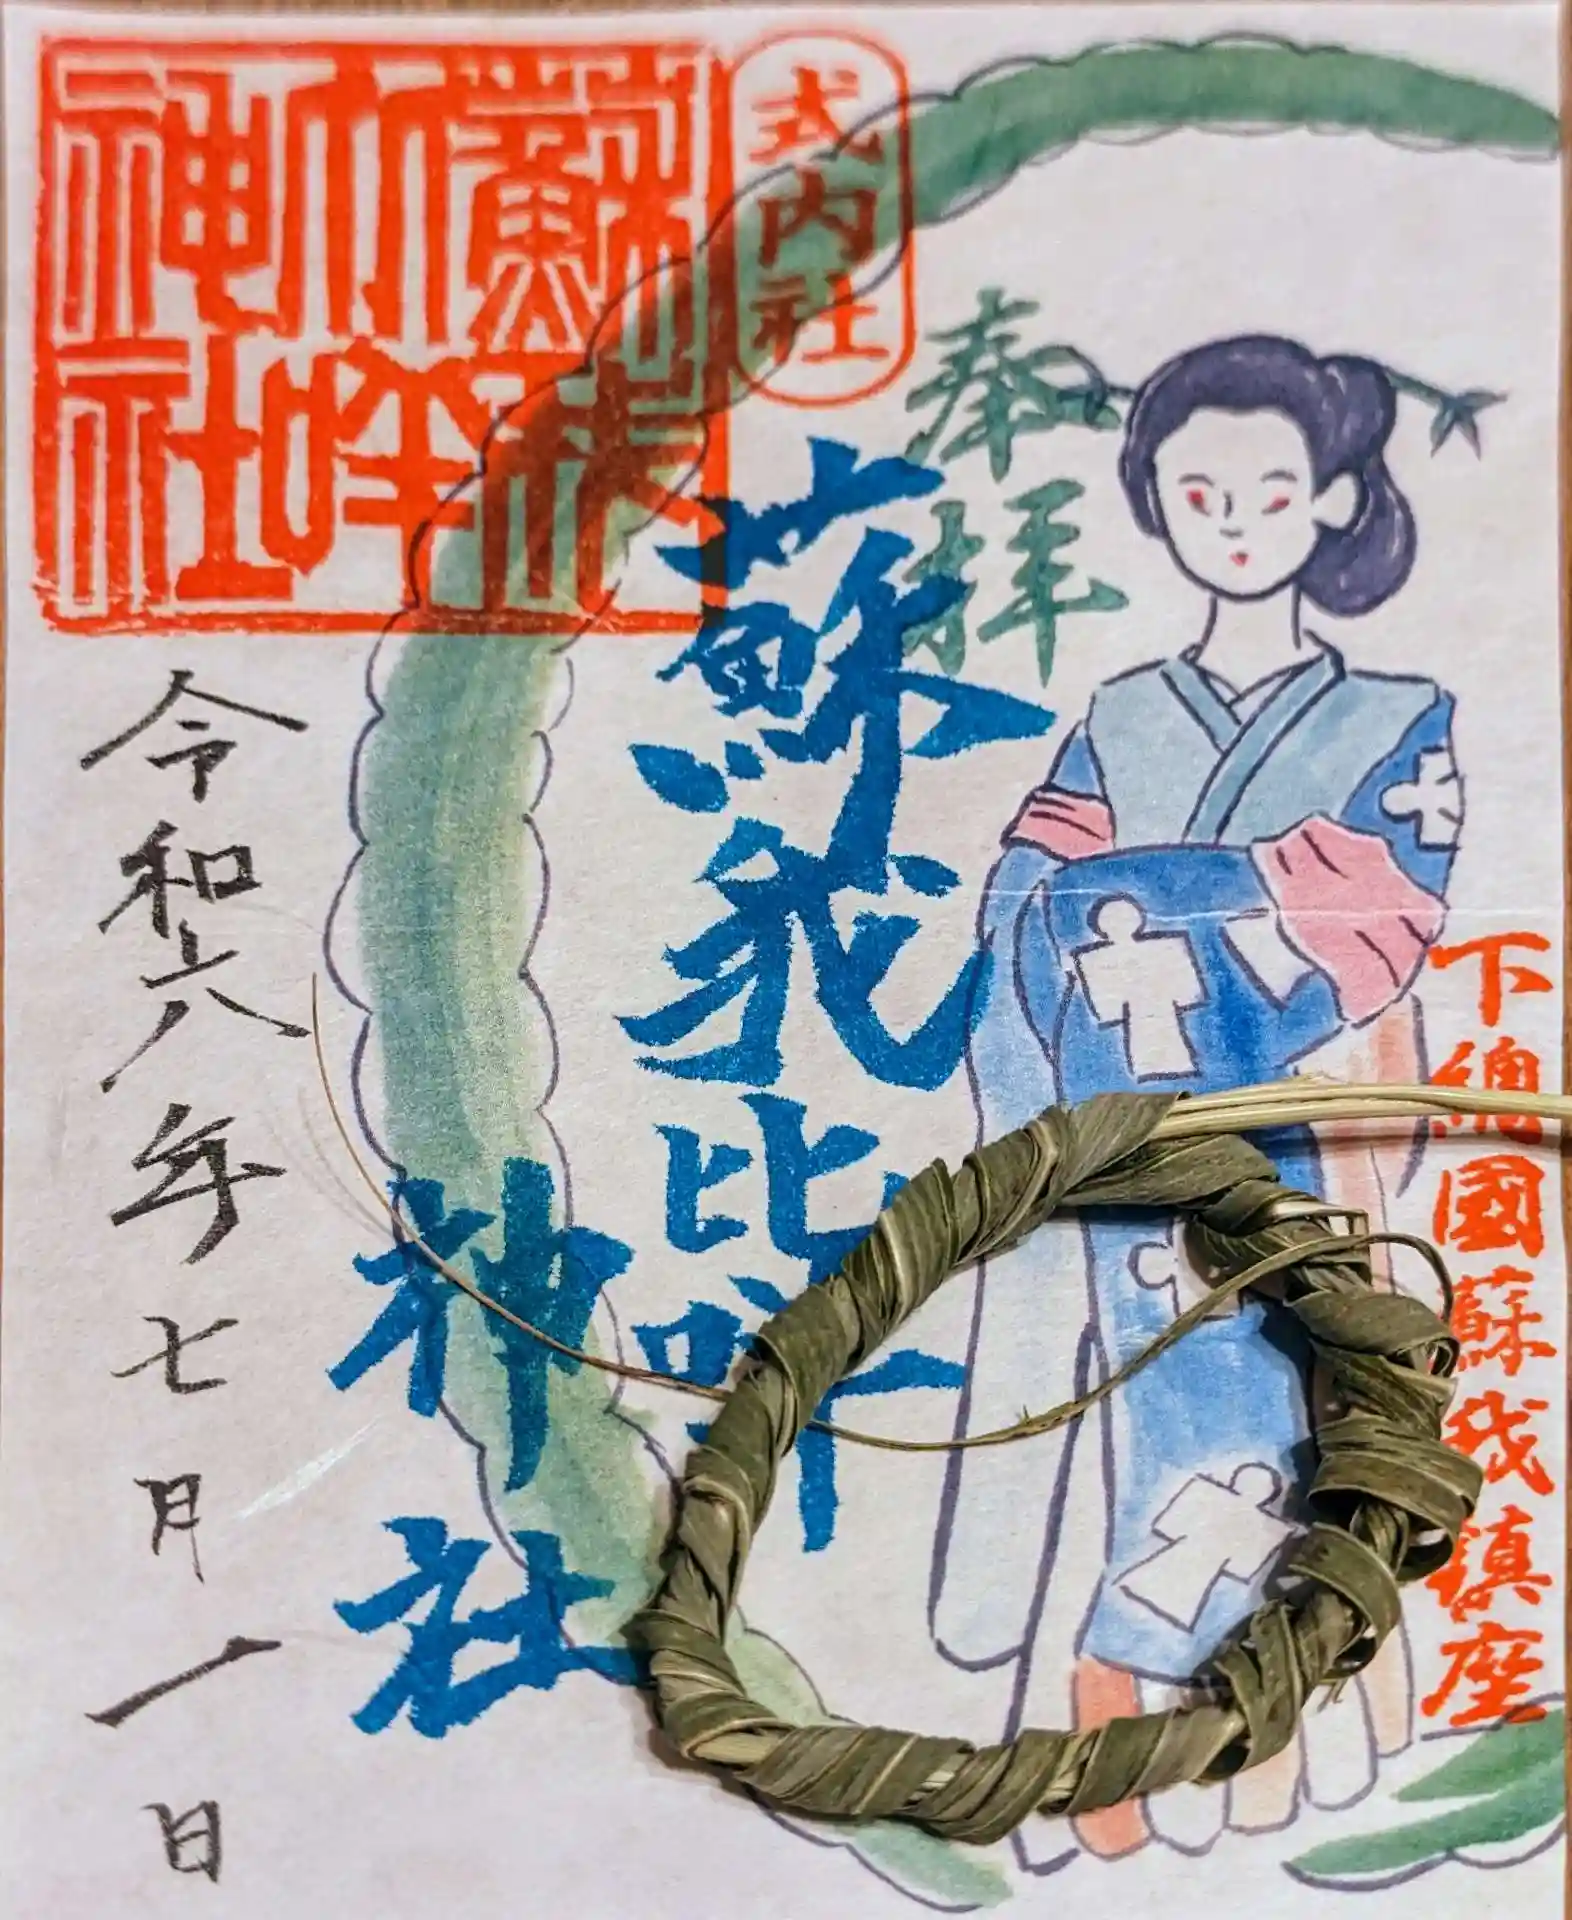 下總國蘇我鎮座
奉拝
式内社
蘇我比咩神社
蘇我比咩
神社
令和六年七月一日